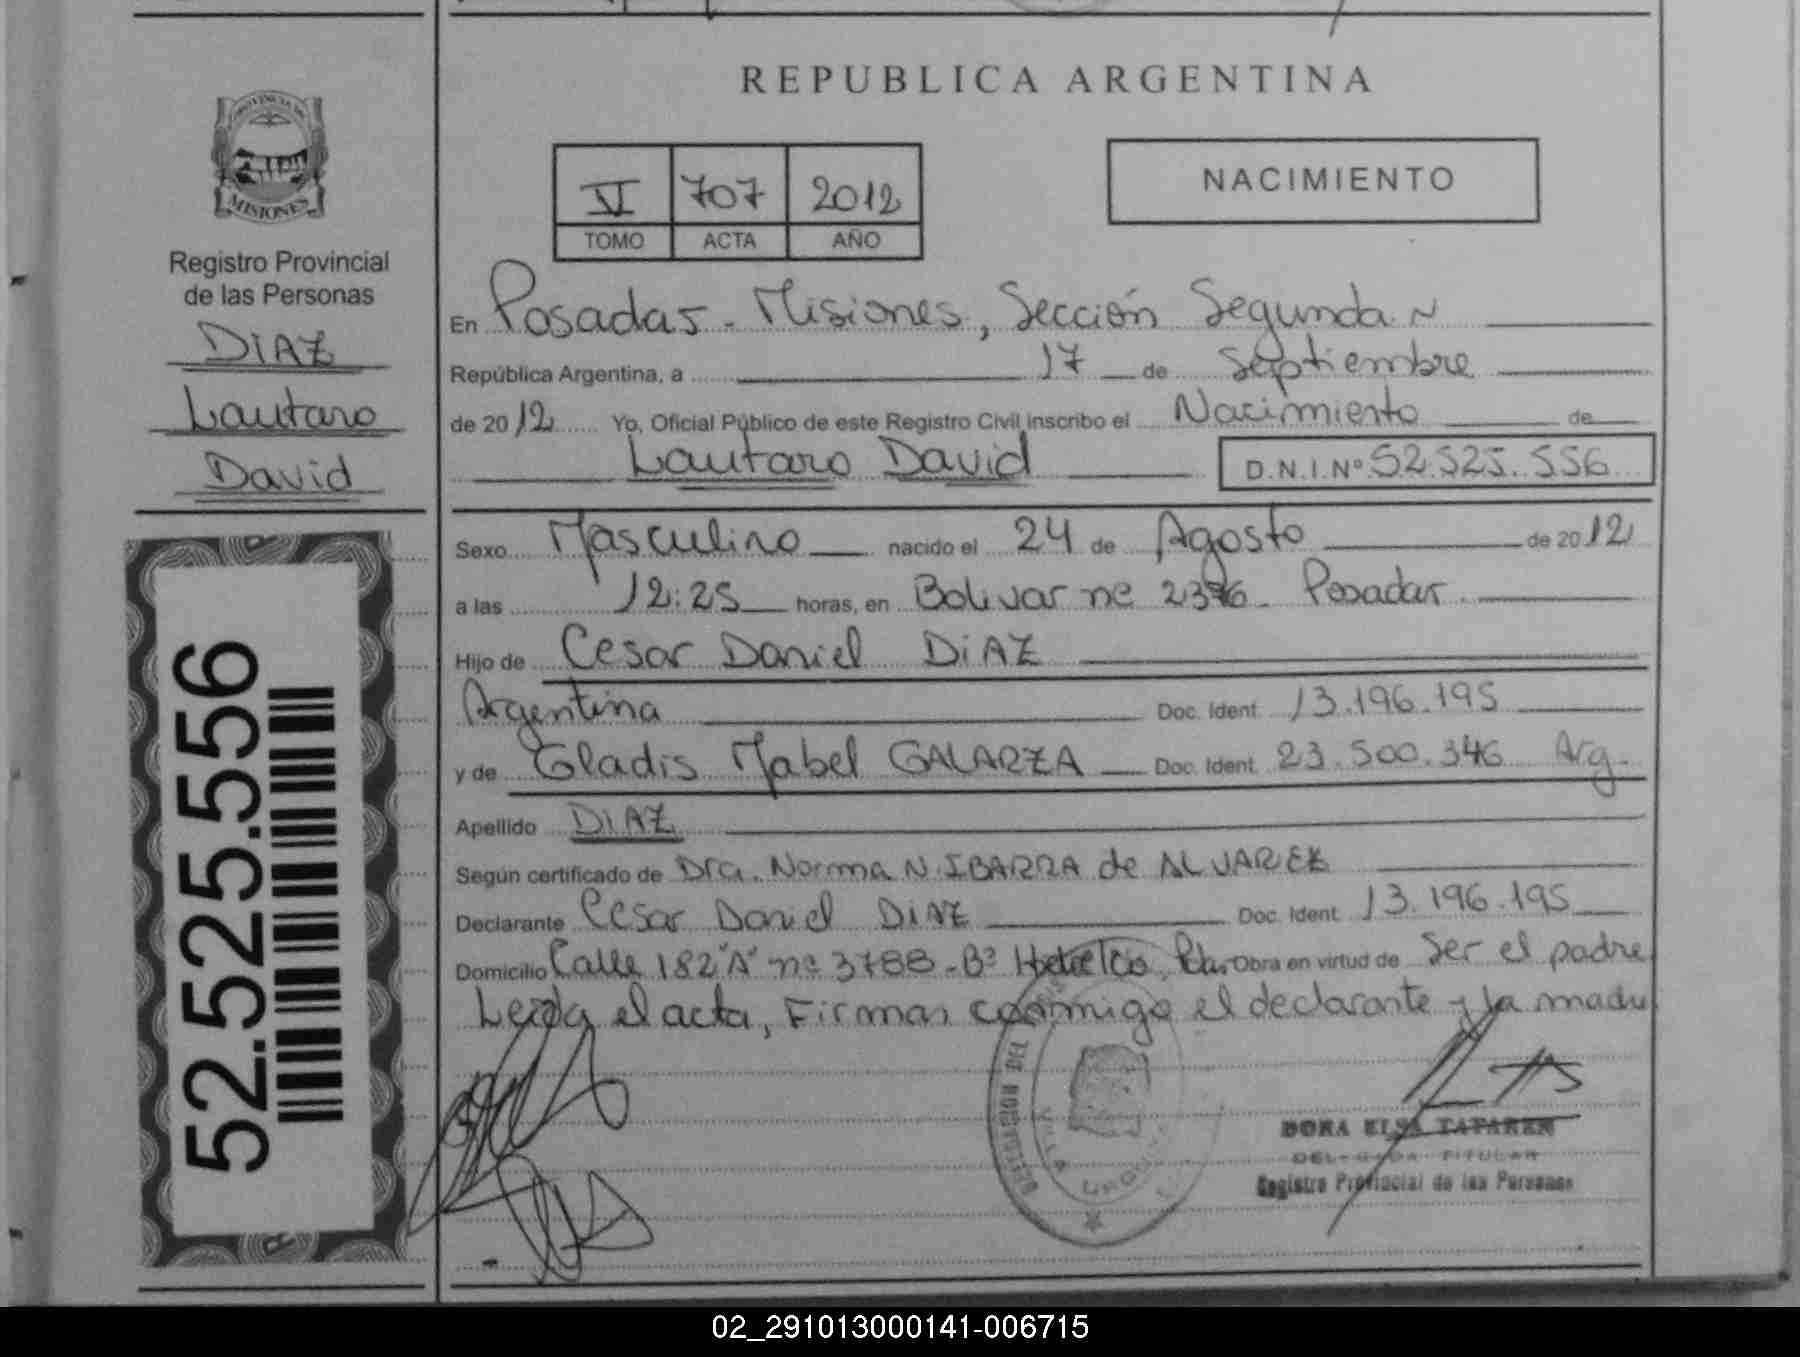 REPUBLICA ARGENTINA
PROVINCIA DE
MISIONES
Registro Provincial
de las Personas
DIAZ
Lautaro
David
52.525.556
VI 707 2012
TOMO ACTA AÑO
NACIMIENTO
En Posadas - Misiones, Sección Segunda
República Argentina, a 17 de Septiembre
de 2012 Yo, Oficial Público de este Registro Civil inscribo el Nacimiento de
Lautaro David D.N.I.Nº 52.525.556
Sexo Masculino nacido el 24 de Agosto de 2012
a las 12:25 horas, en Bolivar nº Posadas.
Hijo de Cesar Daniel DIAZ
Argentina Doc. Ident. 13.196.195
y de Gladis Mabel GALARZA Doc. Ident. 23.500.346 Arg.
Apellido DIAZ
Según certificado de Dra. Norma N. IBARRA de ALVAREZ
Declarante Cesar Daniel DIAZ Doc. Ident. 13.196.195
Domicilio Calle 182 "A" nº 3788 - Bº Obra en virtud de Ser el padre
Leida el acta, Firman conmigo el declarante y la madre
VILLA URQUIZA
DORA ELSA
DELEGADA TITULAR
Registro Provincial de las Personas
02_291013000141-006715